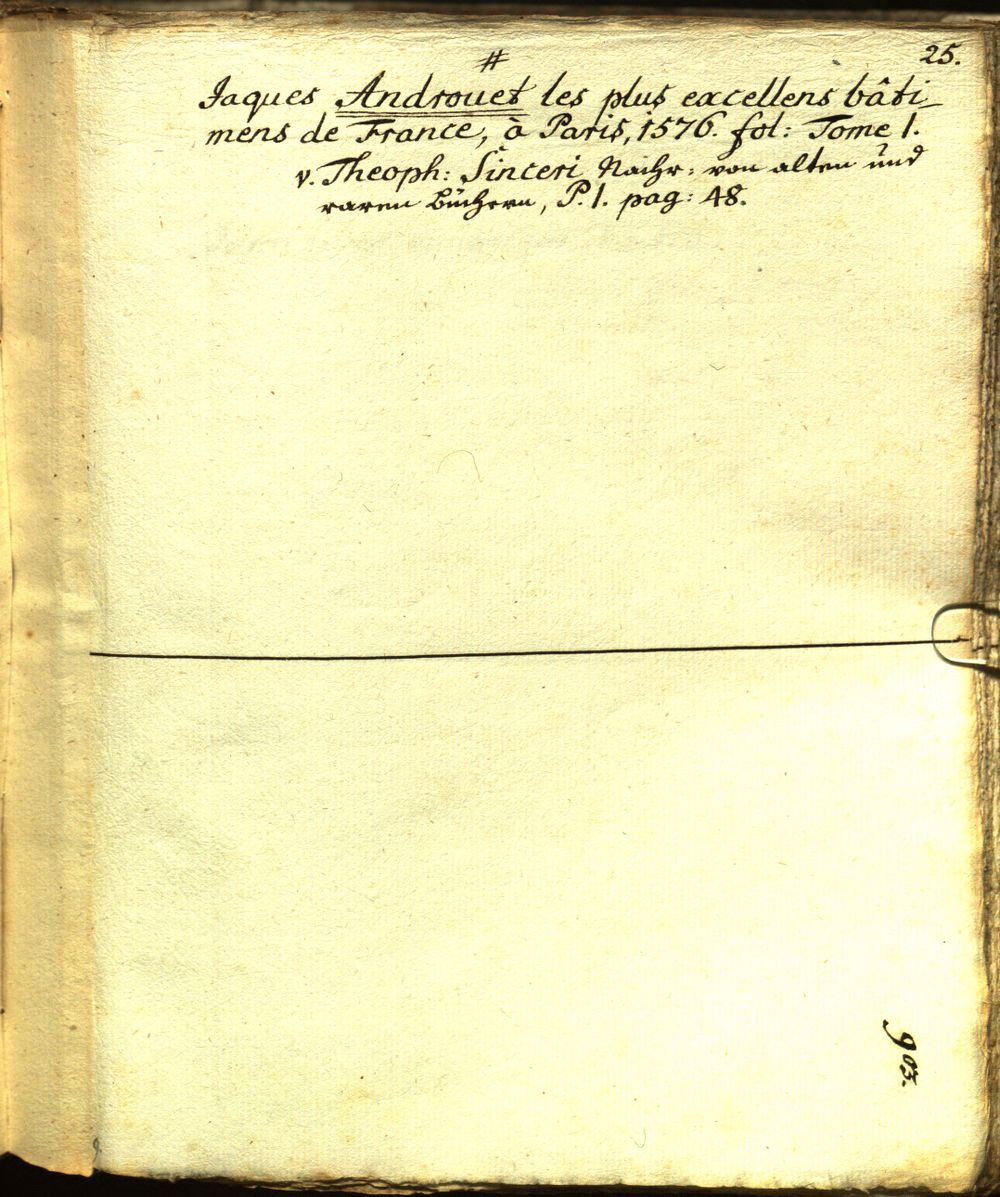 25.
#
Jaques Androuet les plus excellens bâti-
mens de France, à Paris, 1576. fol: Tome 1.
v. Theoph: Sinceri Nachr: von alten und
raren Büchern, P. 1. pag: 48.
903.